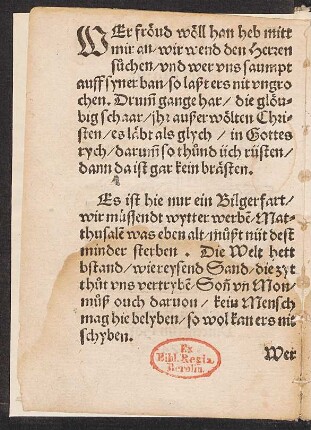 WEr fröud wöll han heb mitt
mir an / wir wend den Herzen
süchen / vnd wer vns saumpt
auff syner ban / so laßt ers nit vngro
chen. Drum̄ gange har / die glöu-
big schaar / jhr außerwölten Chri-
sten / es läbt als glych / in Gottes
rych / darum̄ so thünd üch rüsten /
dann da ist gar kein brästen.
Es ist hie nur ein Bilgerfart /
wir müssendt wytter werbē / Mat-
thusalē was eben alt / müßt nüt dest
minder sterben. Die Welt hett
bstand / wie reysend Sand / die zyt
thüt vns vertrybē / Soñ vn̄ Mon
müß ouch daruon / kein Mensch
mag hie belyben / so wol kan ers nit
schyben.
Wer
Ex
Bibl. Regia
Berolin.